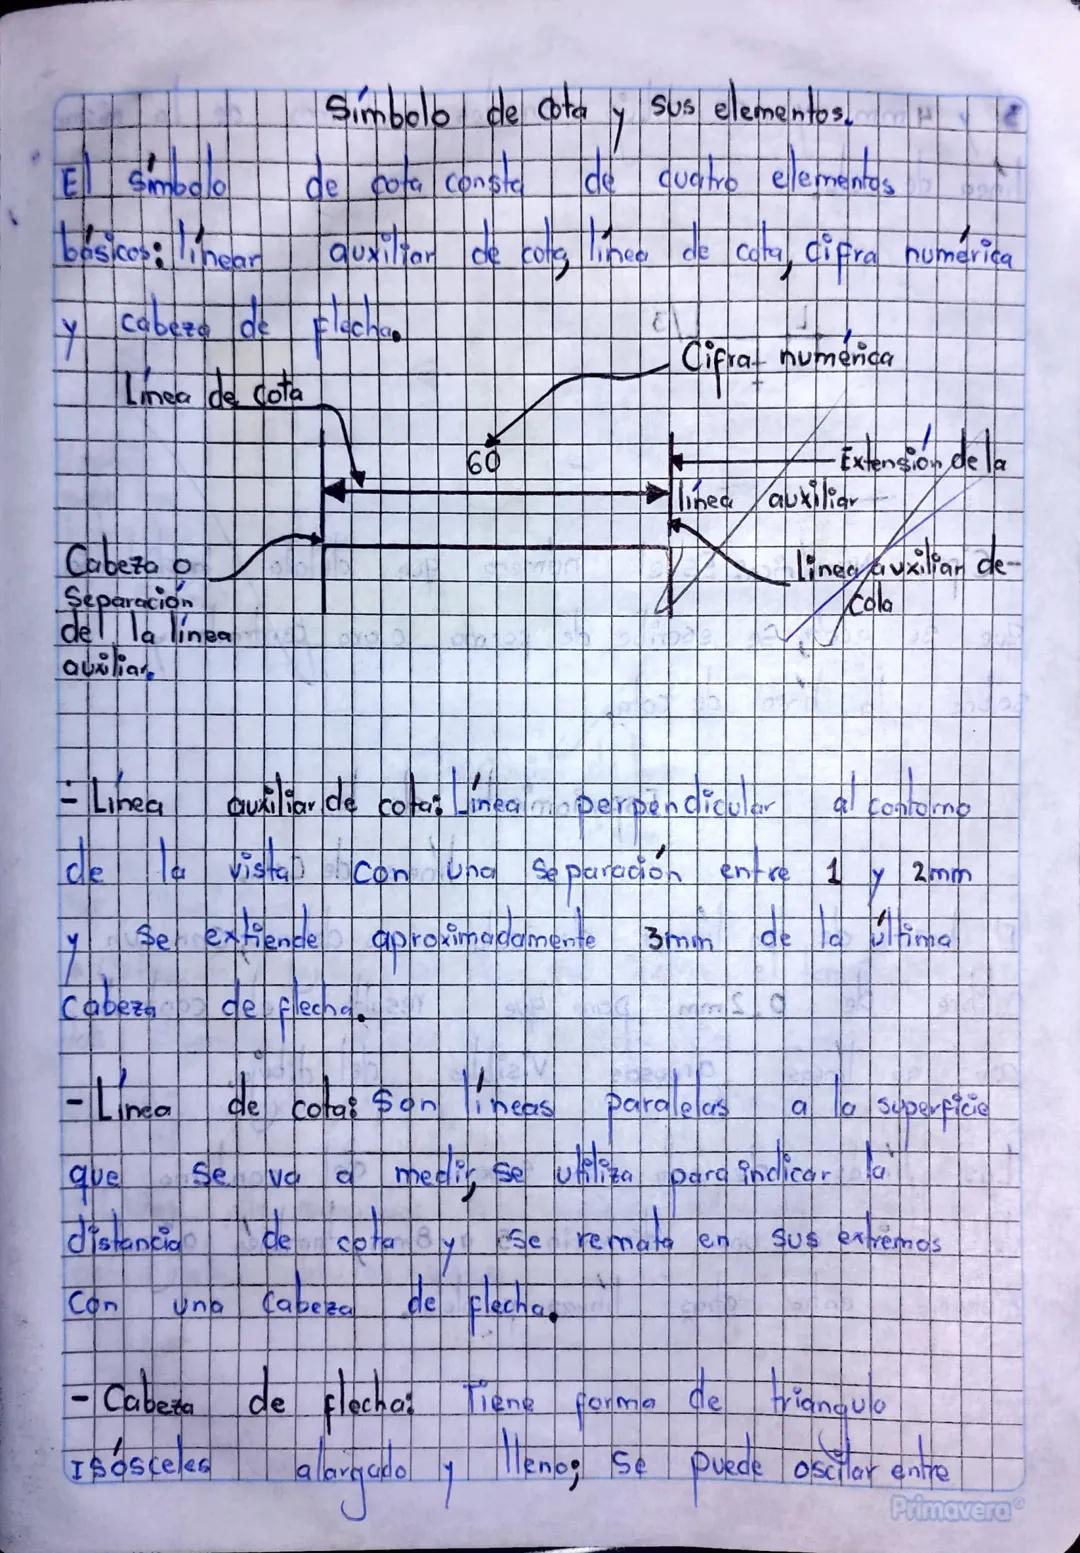 Símbolo de cota y sus elementos.
El símbolo de cota consta de cuatro elementos
básicos: línear auxiliar de cota, línea de cota, cifra numérica
y cabeza de flecha.
Cifra numérica
Línea de cota
60
Extensión de la
línea auxiliar
Cabeza o
Separación
del la línea
auxiliar.
Linea auxiliar de-
cola
- Línea auxiliar de cota: Línea perpendicular al contorno
de la vista con una separación entre 1 y 2mm
y se extiende aproximadamente 3mm de la última
cabeza de flecha.
- Línea de cota: Son líneas paralelas a la superficie
que se va a medir, se utiliza para indicar la
distancia de cota y se remata en sus extremos
con una cabeza de flecha.
- Cabeza de flecha: Tiene forma de triángulo
Isósceles alargado y lleno; se puede oscilar entre
Primavera